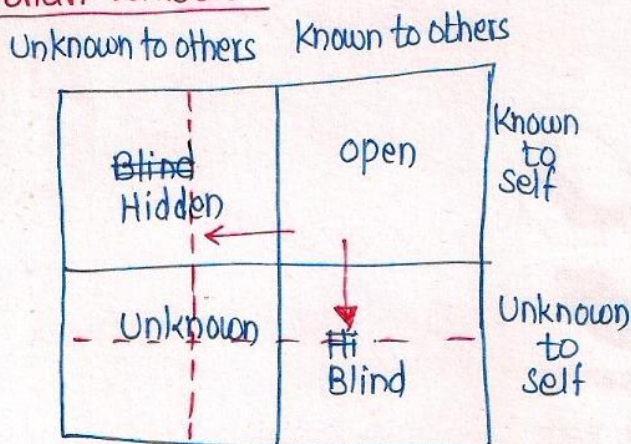 Unknown to others Known to others
~~Blind~~
Hidden
open
Known
to
self
Unknown
~~Hi~~
Blind
Unknown
to
self